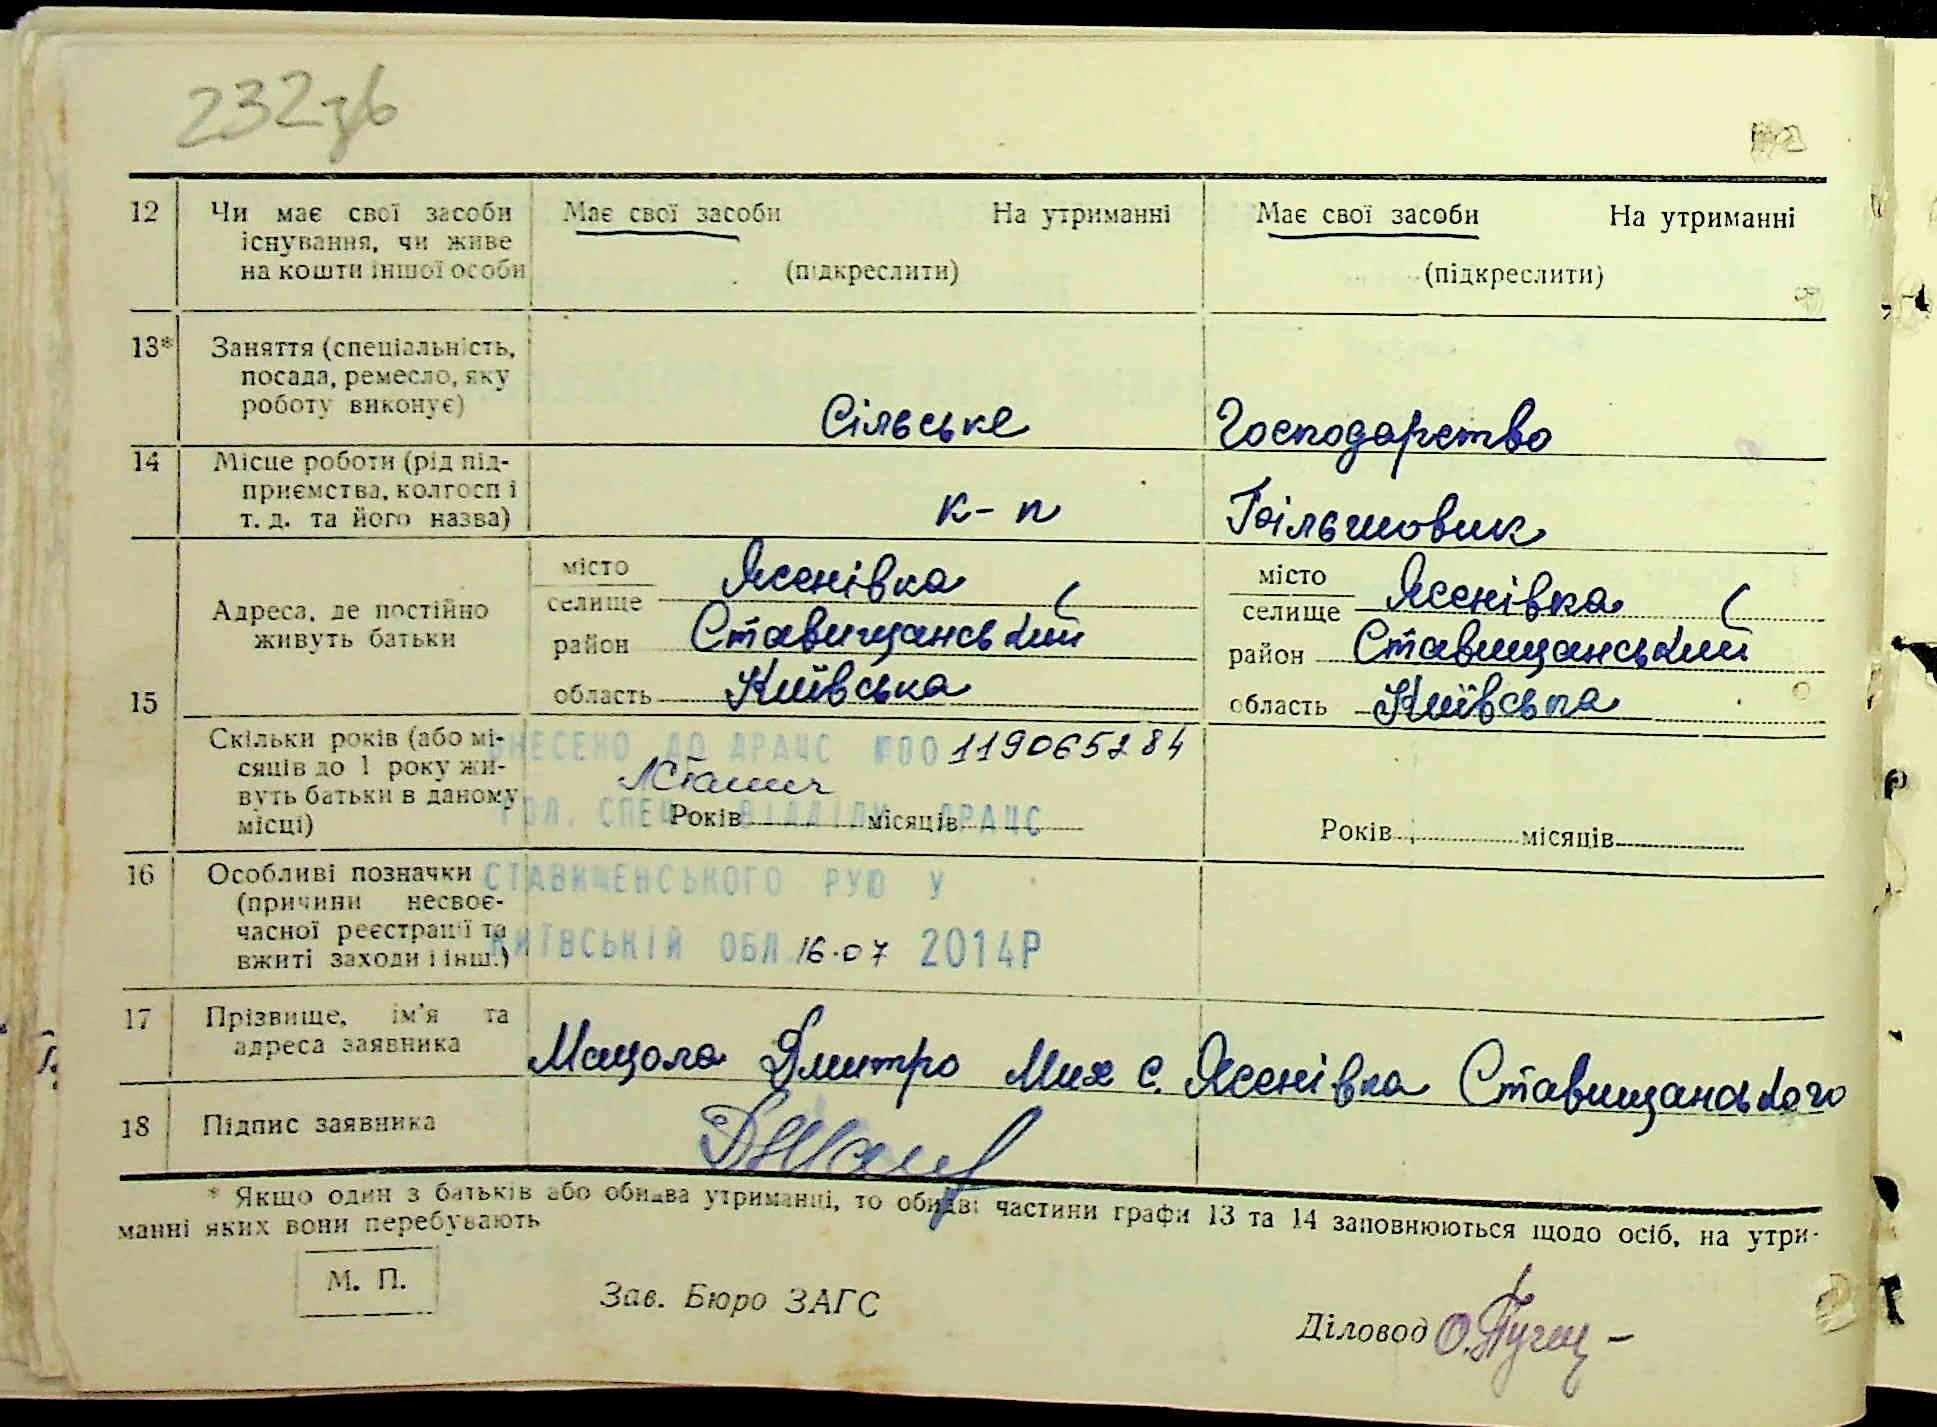 232зв
12 Чи має свої засоби існування, чи живе на кошти іншої особи
Має свої засоби На утриманні
(підкреслити)
Має свої засоби На утриманні
(підкреслити)
13* Заняття (спеціальність,
посада, ремесло, яку
роботу виконує)
Сільське Господарство
14 Місце роботи (рід під-
приємства, колгосп і
т. д. та його назва)
к-п Більшовик
15 Адреса, де постійно
живуть батьки
місто
селище Ясенівка
район Ставищанський
область Київська
місто
селище Ясенівка
район Ставищанський
область Київська
Скільки років (або мі-
сяців до 1 року жи-
вуть батьки в даному
місці)
Років місяців
Років місяців
ВНЕСЕНО ДО ДРАЦС №00 119065284
ГОЛ. СПЕЦ. ВІДДІЛУ ДРАЦС
СТАВИЩЕНСЬКОГО РУЮ У
КИЇВСЬКІЙ ОБЛ 16.07 2014Р
16 Особливі позначки
(причини несвоє-
часної реєстрації та
вжиті заходи і інш.)
17 Прізвище, ім'я та
адреса заявника
Мацола Дмитро Мих с. Ясенівка Ставищанського
18 Підпис заявника
* Якщо один з батьків або обидва утриманці, то обидві частини графи 13 та 14 заповнюються щодо осіб, на утри-
манні яких вони перебувають
М. П.
Зав. Бюро ЗАГС
Діловод